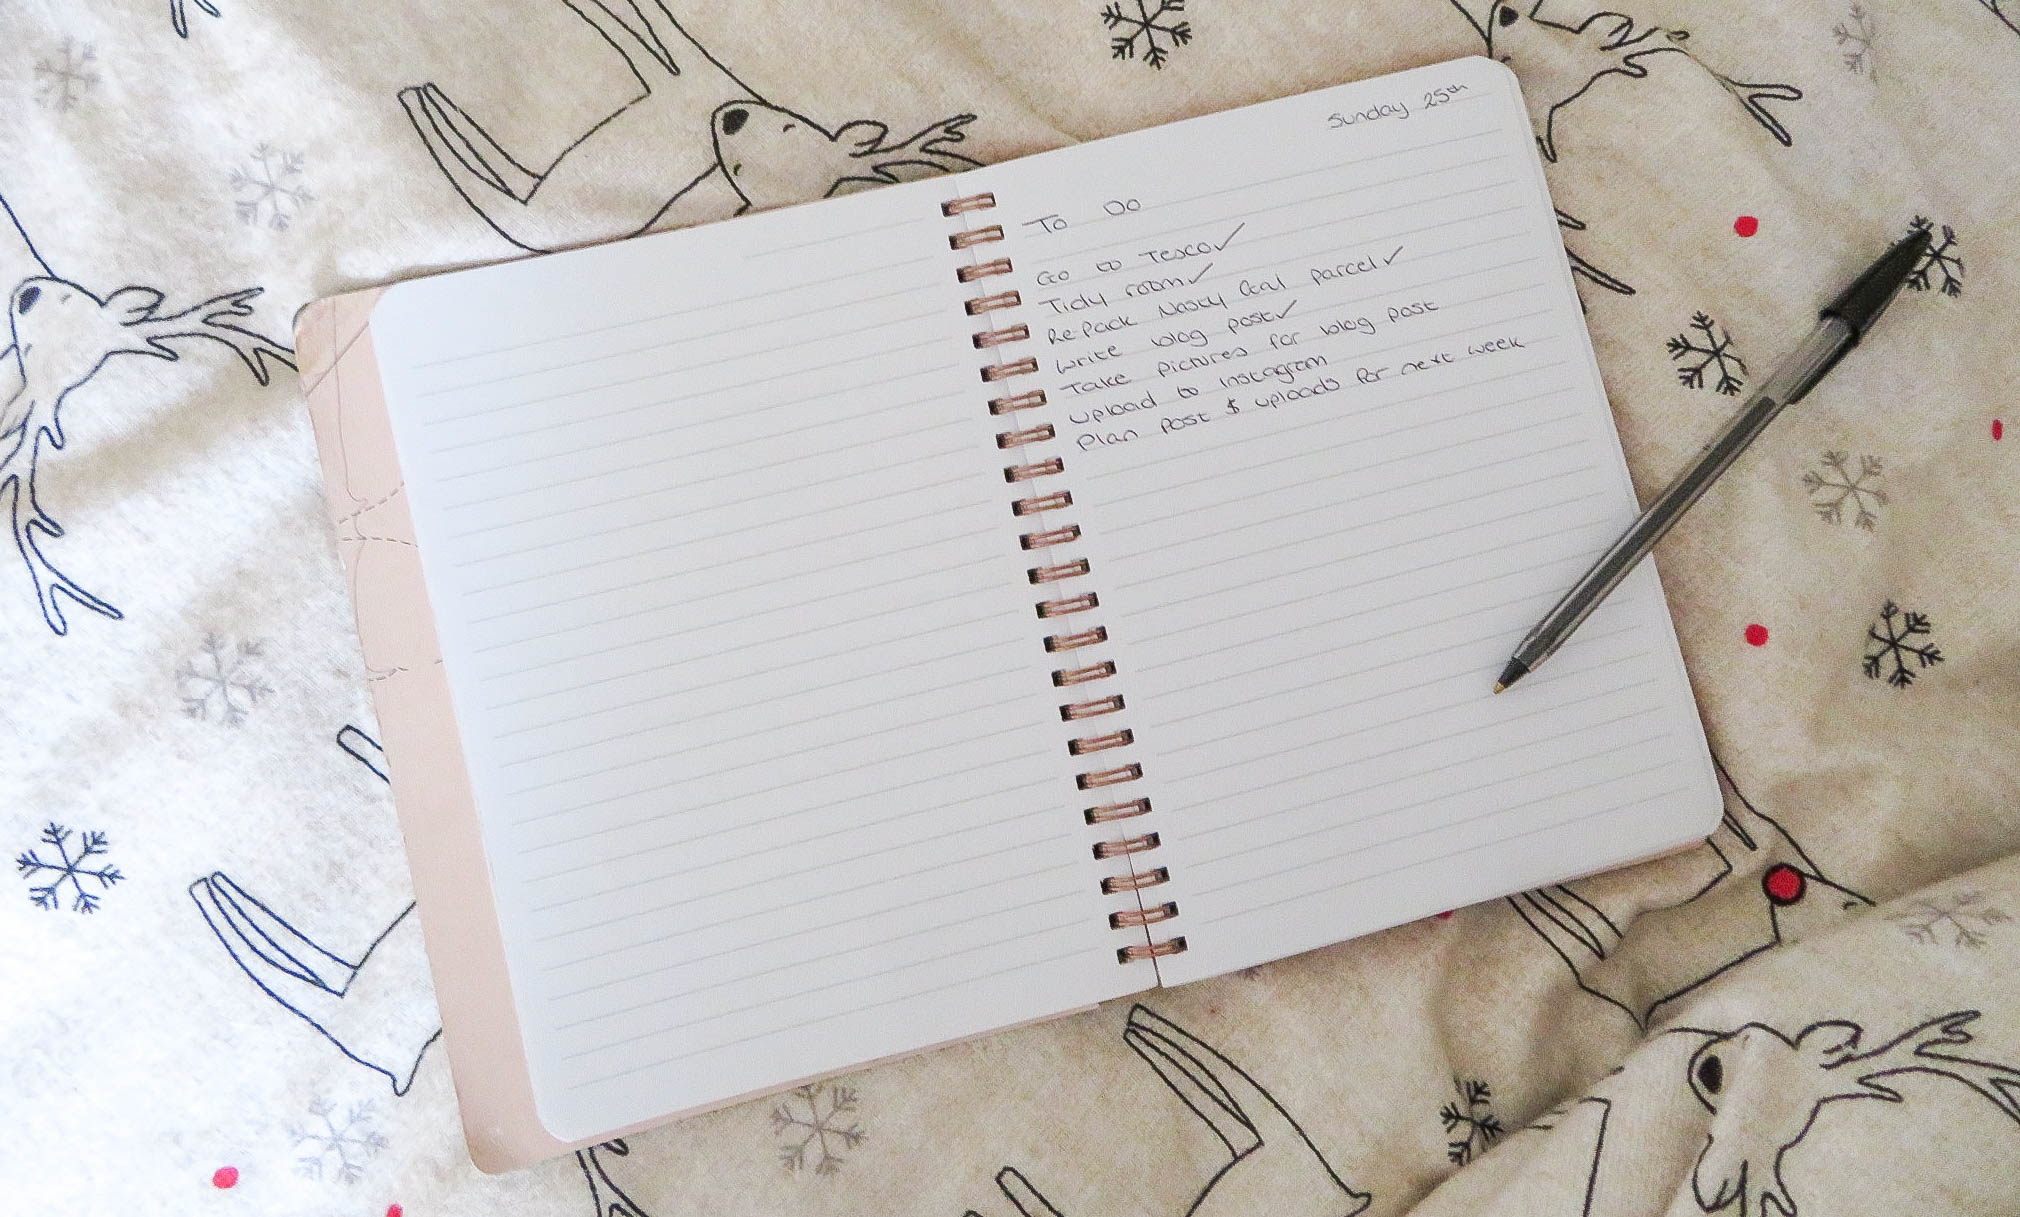 Sunday 25th
To Do
Go to Tesco✓
Tidy room✓
Repack Nasty Gal parcel✓
Write blog post✓
Take pictures for blog post
Upload to Instagram
Plan post & uploads for next week